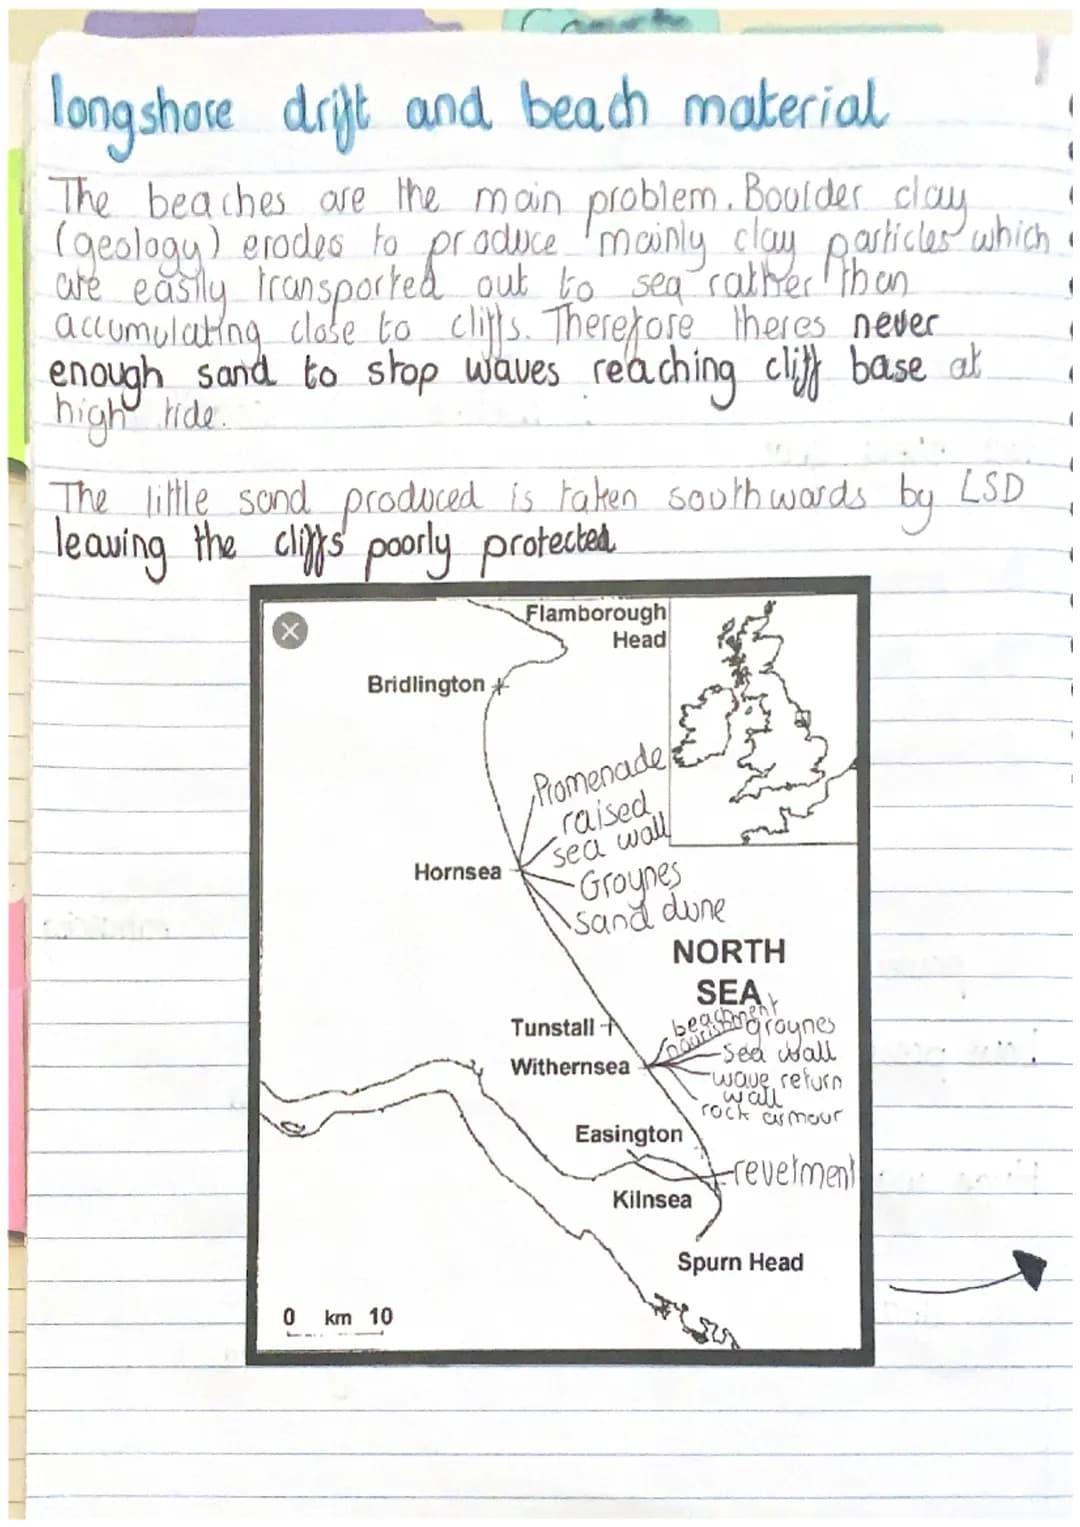 longshore drift and beach material
The beaches are the main problem. Boulder clay
(geology) erodes to produce mainly clay particles which
are easily transported out to sea rather than
accumulating close to cliffs. Therefore theres never
enough sand to stop waves reaching cliff base at
high tide.
The little sand produced is taken southwards by LSD
leaving the cliffs poorly protected
Flamborough
Head
Bridlington
Promenade
raised
sea wall
Hornsea
Groynes
sand dune
NORTH
SEA
Tunstall
beachment
nourish
groynes
Withernsea
sea wall
wave return
wall
rock armour
Easington
revetment
Kilnsea
Spurn Head
0 km 10